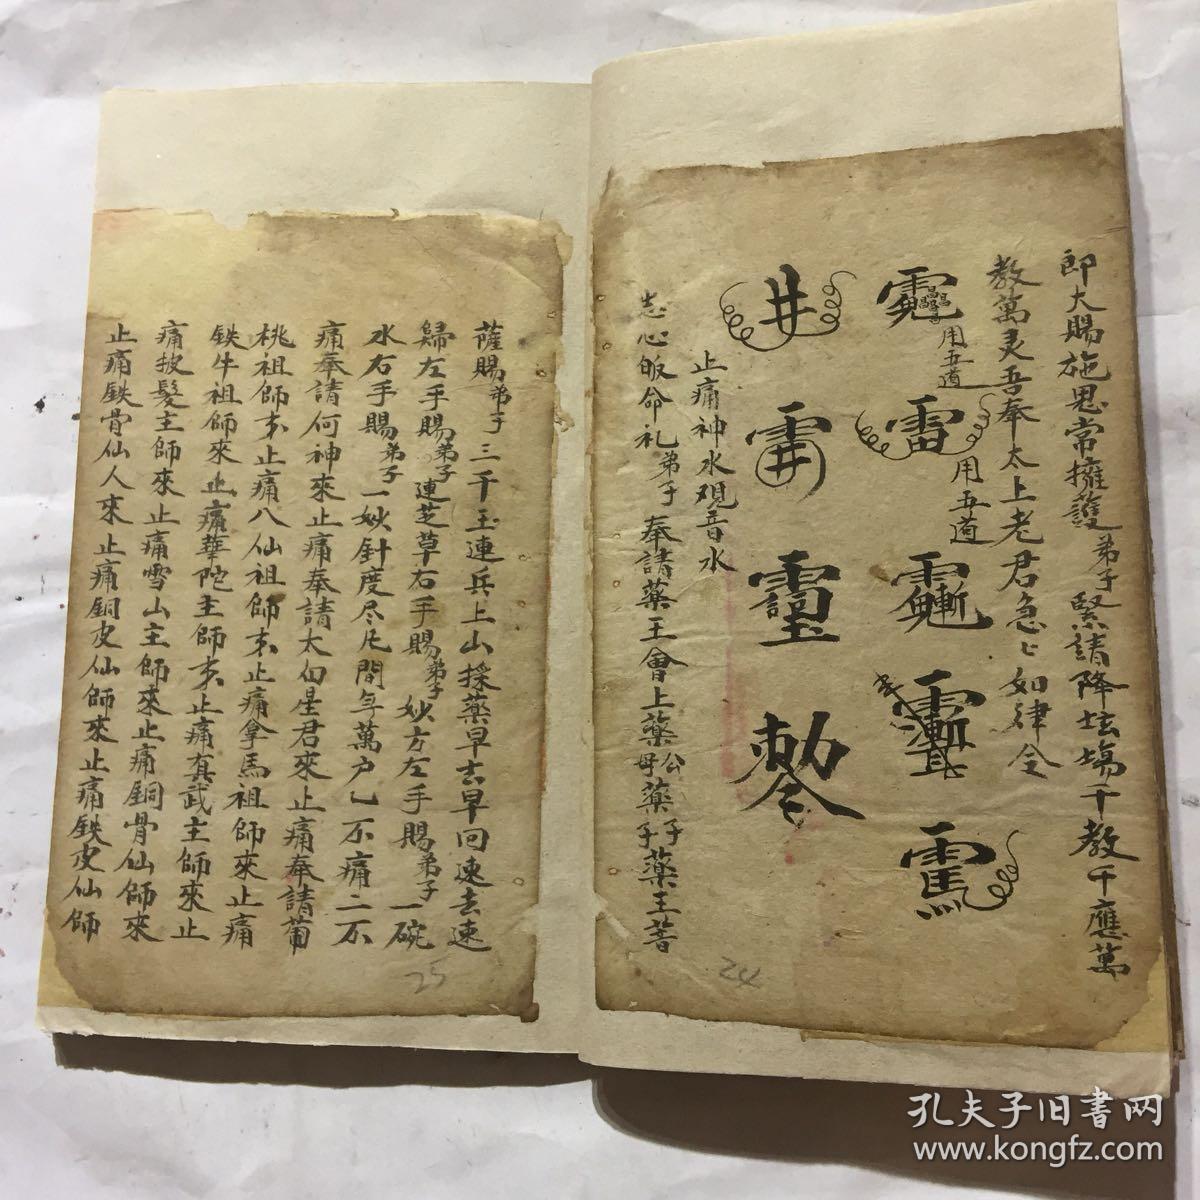 郎大賜施恩常擁護弟子緊請降坛場千教千應萬
教萬灵吾奉太上老君急ヒ如律令
用五道
雷
用五道
井
勅
止痛神水观音水
志心皈命礼弟子奉請藥王會上藥公母藥子子藥王菩
24
薩賜弟子三千玉連兵上山採藥早去早回速去速
歸左手賜弟子連芝草右手賜弟子妙方左手賜弟子一碗
水右手賜弟子一妙針度尽凡間年萬户乙不痛二不
痛奉請何神來止痛奉請太白星君來止痛奉請葡
桃祖師來止痛八仙祖師來止痛拿馬祖師來止痛
鉄牛祖師來止痛華陀主師來止痛真武主師來止
痛披髮主師來止痛雪山主師來止痛銅骨仙師來
止痛鉄骨仙人來止痛銅皮仙師來止痛鉄皮仙師
25
孔夫子旧书网
www.kongfz.com